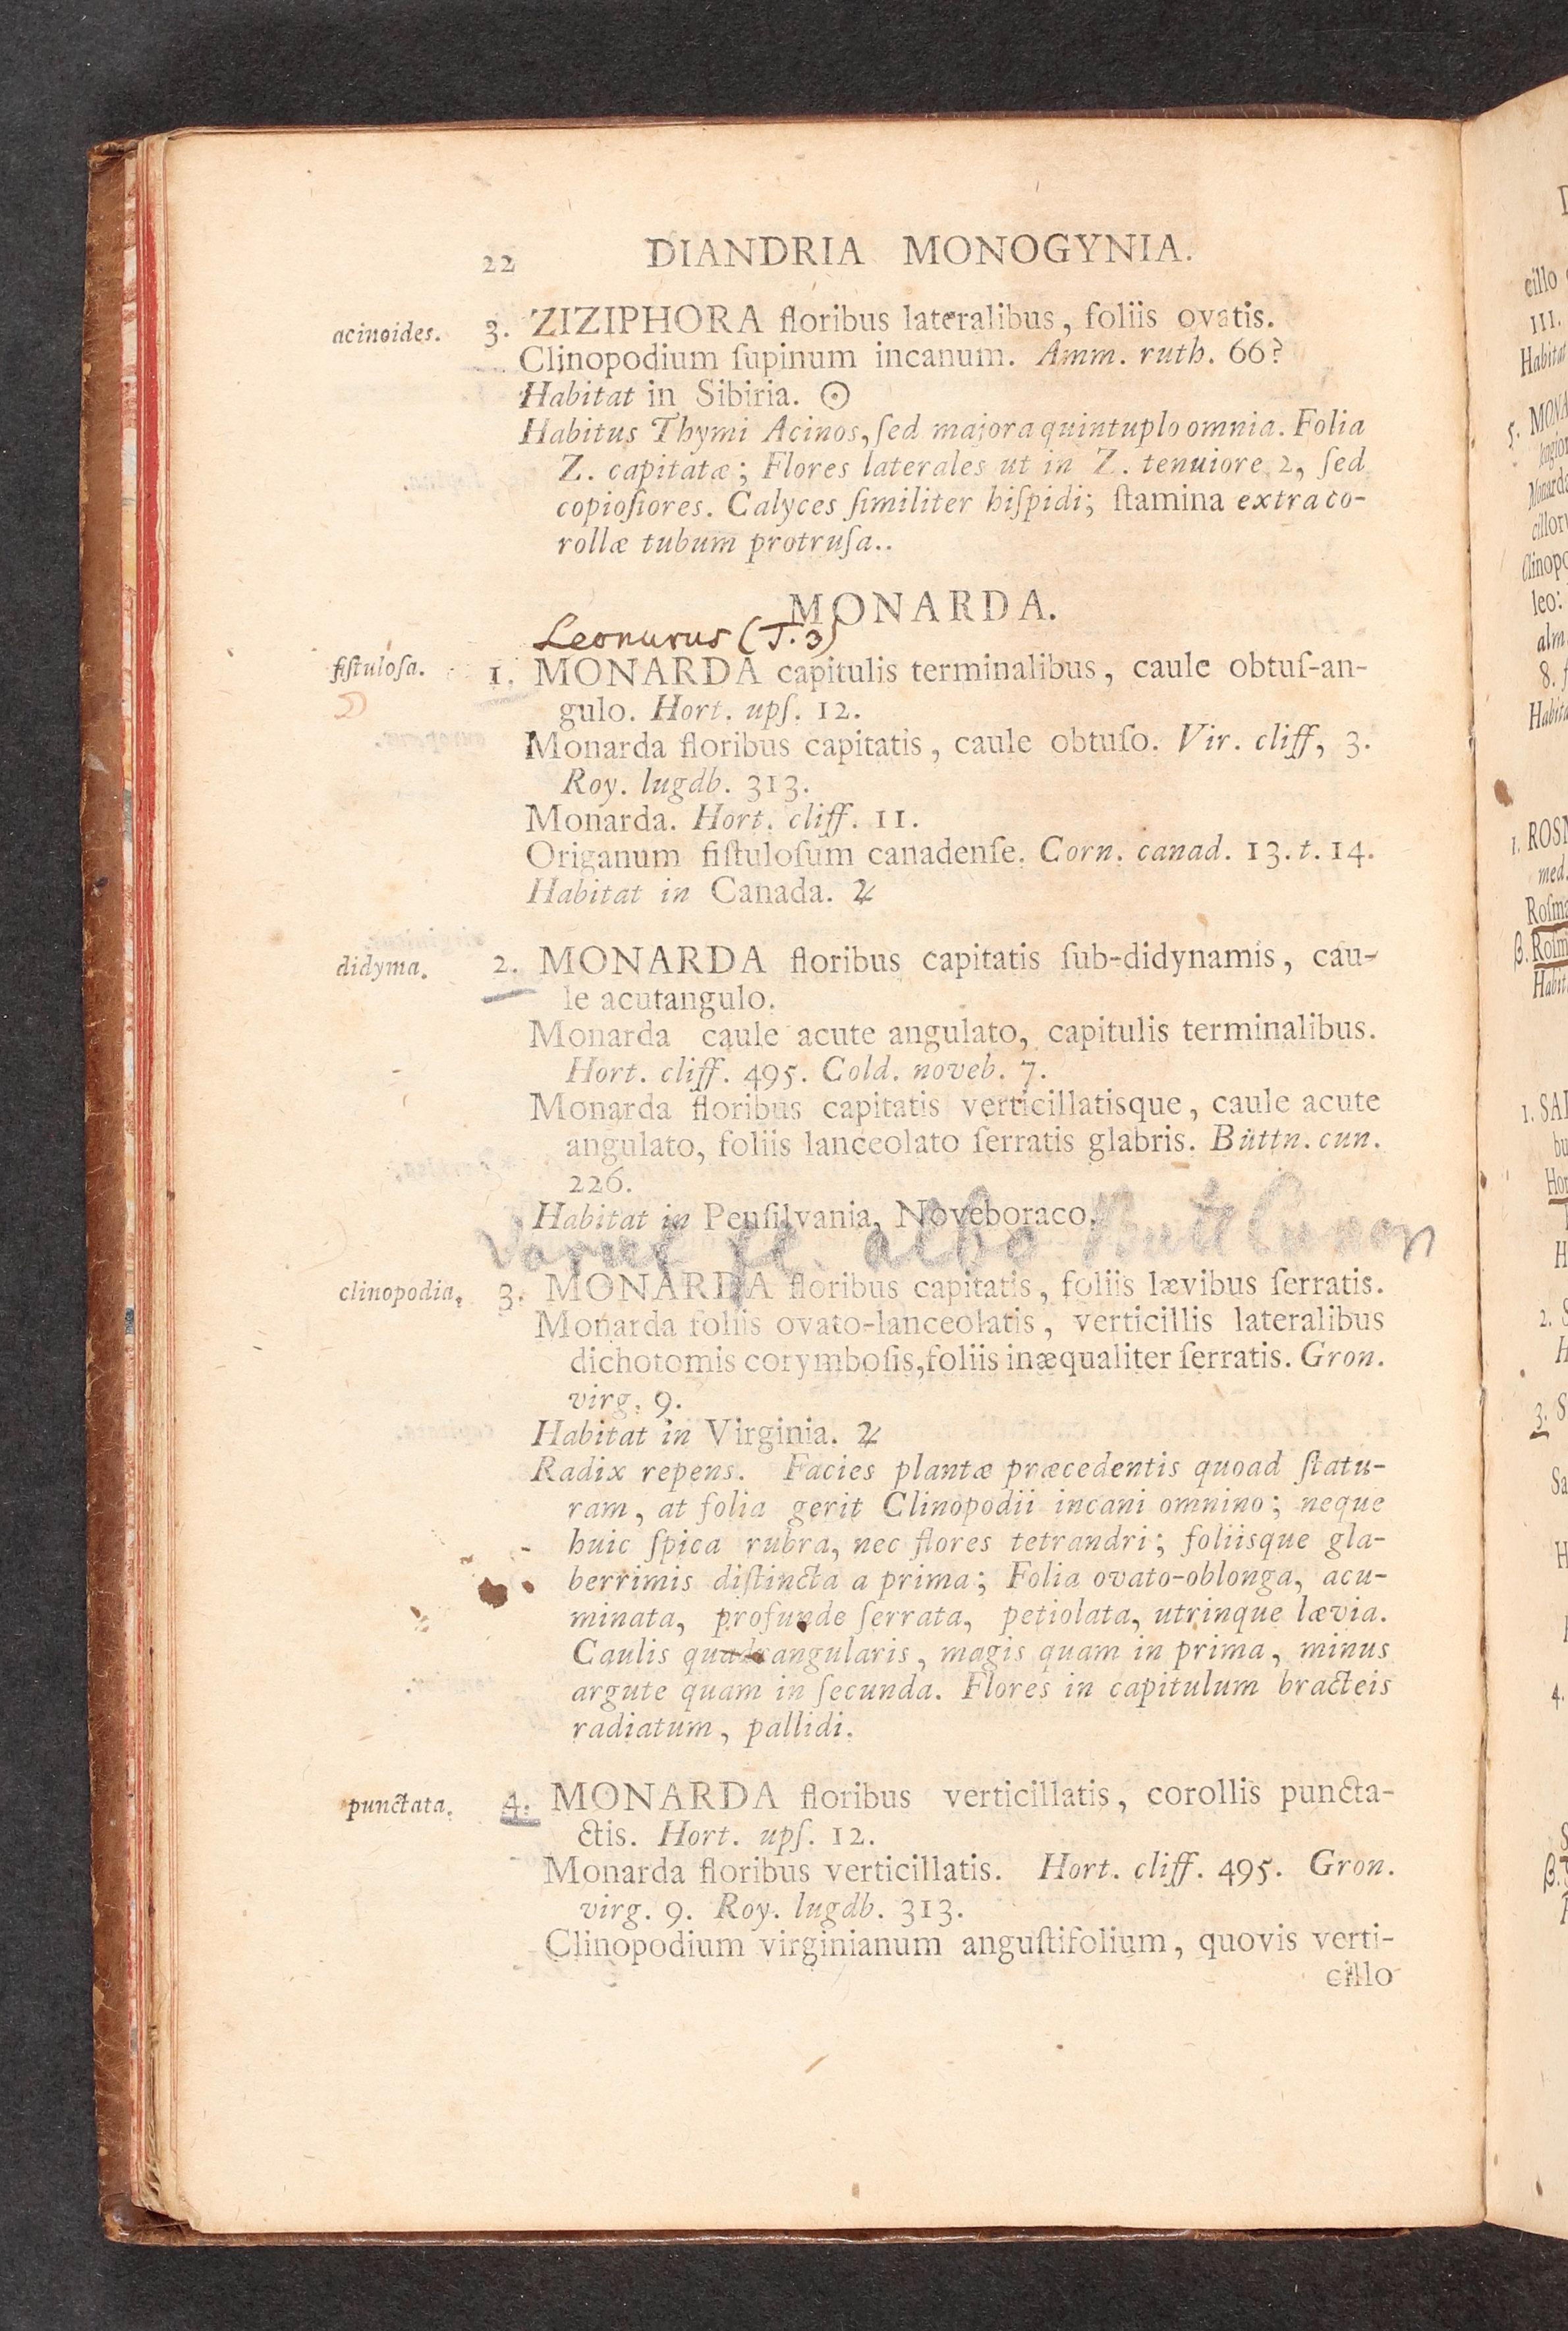 22 DIANDRIA MONOGYNIA.
acinoides. 3. ZIZIPHORA floribus lateralibus, foliis ovatis.
Clinopodium ſupinum incanum. Amm. ruth. 66?
Habitat in Sibiria. ☉
Habitus Thymi Acinos, ſed majora quintuplo omnia. Folia
Z. capitatæ; Flores laterales ut in Z. tenuiore 2, ſed
copioſiores. Calyces ſimiliter hiſpidi; ſtamina extra co-
rollæ tubum protruſa..
MONARDA.
Leonurus (T. 3)
fiſtuloſa. 1. MONARDA capitulis terminalibus, caule obtuſ-an-
gulo. Hort. upſ. 12.
Monarda floribus capitatis, caule obtuſo. Vir. cliff, 3.
Roy. lugdb. 313.
Monarda. Hort. cliff. 11.
Origanum fiſtuloſum canadenſe. Corn. canad. 13. t. 14.
Habitat in Canada. ♃
didyma. 2. MONARDA floribus capitatis ſub-didynamis, cau-
le acutangulo.
Monarda caule acute angulato, capitulis terminalibus.
Hort. cliff. 495. Cold. noveb. 7.
Monarda floribus capitatis verticillatisque, caule acute
angulato, foliis lanceolato ſerratis glabris. Büttn. cun.
226.
Habitat in Penſilvania, Noveboraco.
Variet fl. albo Butt Cunon
clinopodia. 3. MONARDA floribus capitatis, foliis lævibus ſerratis.
Monarda foliis ovato-lanceolatis, verticillis lateralibus
dichotomis corymboſis, foliis inæqualiter ſerratis. Gron.
virg. 9.
Habitat in Virginia. ♃
Radix repens. Facies plantæ præcedentis quoad ſtatu-
ram, at folia gerit Clinopodii incani omnino; neque
huic ſpica rubra, nec flores tetrandri; foliisque gla-
berrimis diſtincta a prima; Folia ovato-oblonga, acu-
minata, profunde ſerrata, petiolata, utrinque lævia.
Caulis quadrangularis, magis quam in prima, minus
argute quam in ſecunda. Flores in capitulum bracteis
radiatum, pallidi.
punctata. 4. MONARDA floribus verticillatis, corollis puncta-
ctis. Hort. upſ. 12.
Monarda floribus verticillatis. Hort. cliff. 495. Gron.
virg. 9. Roy. lugdb. 313.
Clinopodium virginianum anguſtifolium, quovis verti-
cillo
cillo
III.
Habitat
5. MONA
Monarda
leo:
alm.
8.
1. ROSM
med.
β.
1. SAL
2. S
3. S
4.
β.